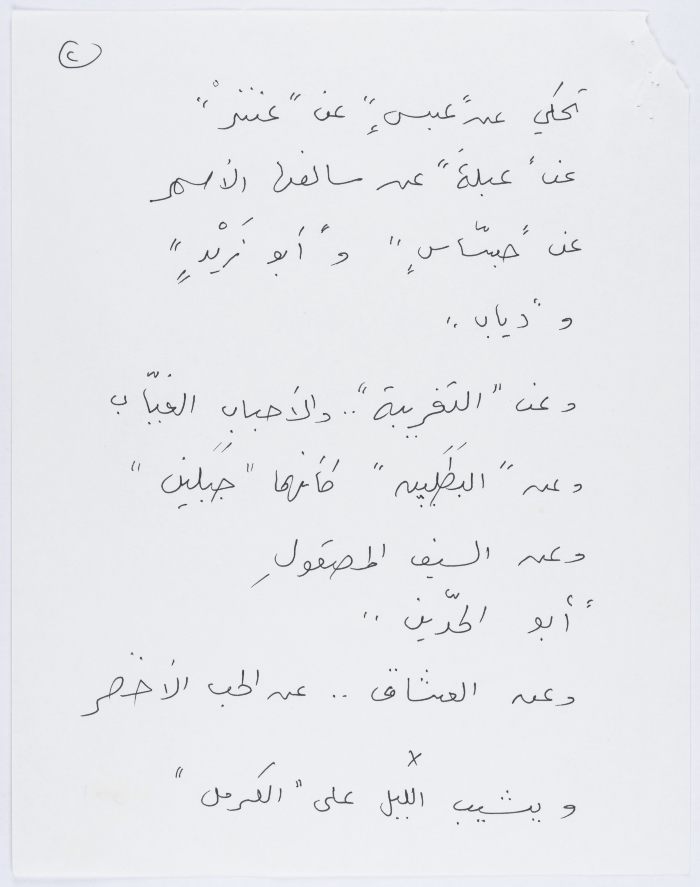 ٢
تحكي عن "عبسٍ" عن "عنترْ"
عن "عبلةَ" عن سالفها الأسمر
عن "جسّاسٍ" و "أبو زَيْدٍ"
و "دياب"
وعن "التغريبة" .. والأحباب الغيّاب
وعن "البَطَلين" كأنهما "جَبَلين"
وعن السيف المصقولِ
أبو الحدّين ..
وعن العشاق .. عن الحب الأخضر
x
و يشيب الليل على "الكرمل"